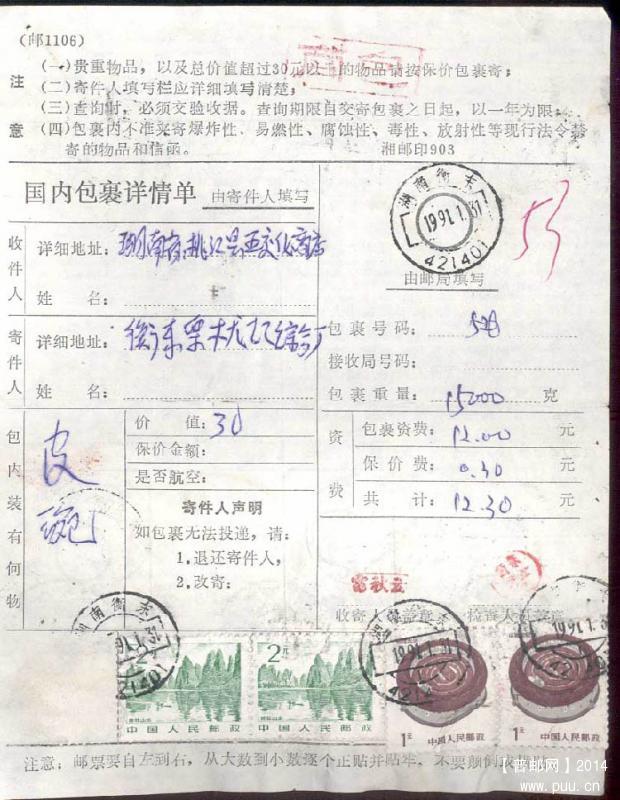 (邮1106)
注意
(一)贵重物品，以及总价值超过30元以上的物品请按保价包裹寄；
(二)寄件人填写栏应详细填写清楚；
(三)查询时，必须交验收据。查询期限自交寄包裹之日起，以一年为限；
(四)包裹内不准夹寄爆炸性、易燃性、腐蚀性、毒性、放射性等现行法令禁
寄的物品和信函。 湘邮印903
国内包裹详情单 由寄件人填写
湖南衡东
1991.1.31
421401
53
由邮局填写
收件人
详细地址：湖南省桃江县五交化商店
姓 名：
寄件人
详细地址：衡东栗木
姓 名：
包裹号码： 528
接收局号码：
包裹重量： 15000 克
包内装有何物
皮
价 值：30
保价金额：
是否航空：
资费
包裹资费： 12.00 元
保 价 费： 0.30 元
共 计： 12.30 元
寄件人声明
如包裹无法投递，请：
1.退还寄件人，
2.改寄：
雷秋云
收寄人员盖章
检查人员盖章
湖南衡东
2元
中国人民邮政
2元
中国人民邮政
1元
中国人民邮政
1元
中国人民邮政
注意：邮票要自左到右，从大数到小数逐个正贴并贴牢，不要颠倒或
【普邮网】2014
www.puu.cn